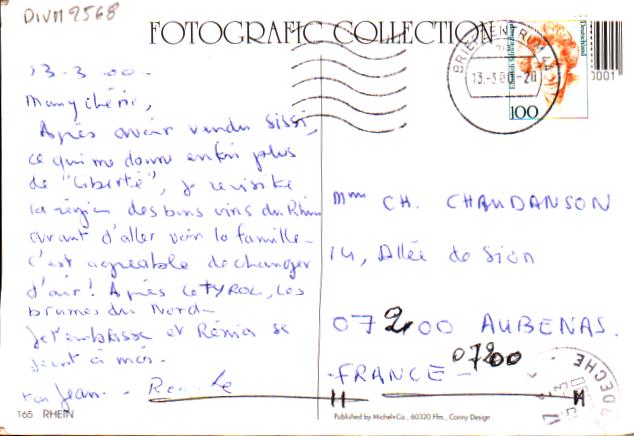 DIVM9568
FOTOGRAFIC COLLECTION
BRIEFZENTRUM
13.-3.00-20
Deutschland
100
0001
13-3-00-
Mamychérie,
Après avoir vendu Sissi,
ce qui me donne enfin plus
de "liberté", je revisite
la région des bons vins du Rhin
avant d'aller voir la famille-
c'est agréable de changer
d'air! Après le TYROL, les
brumes du Nord-
Je t'embrasse et Rénia se
joint à moi.
ton Jean-
Mme CH. CHAUDANSON
14, Allée de Sion
07200 AUBENAS.
07200
-FRANCE-
ARDECHE
165 RHEIN
Published by Michel+Co., 60320 Ffm., Conny Design